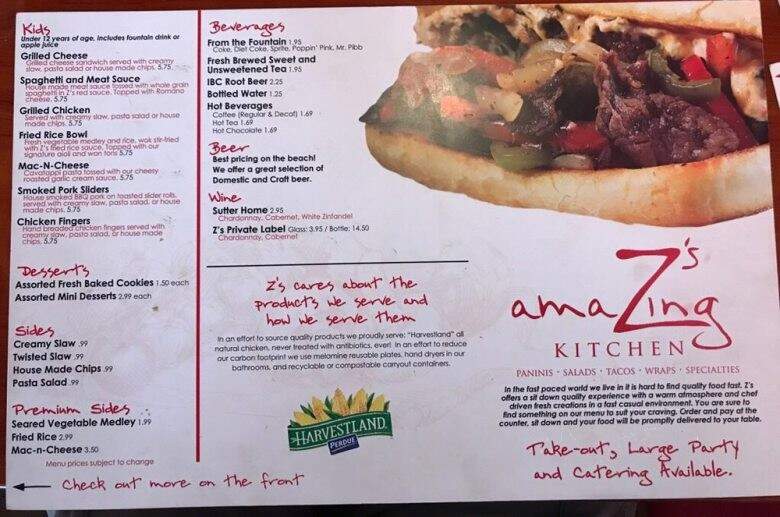 Kids
Under 12 years of age, includes fountain drink or
apple juice
Grilled Cheese
Grilled cheese sandwich served with creamy
slaw, pasta salad or house made chips. 5.75
Spaghetti and Meat Sauce
House made meat sauce tossed with whole grain
spaghetti in Z's red sauce. Topped with Romano
cheese. 5.75
Grilled Chicken
Served with creamy slaw, pasta salad or house
made chips. 5.75
Fried Rice Bowl
Fresh vegetable medley and rice, wok stir-fried
with Z's fried rice sauce. Topped with our
signature aioli and wan tons 5.75
Mac-N-Cheese
Cavatappi pasta tossed with our cheesy
roasted garlic cream sauce. 5.75
Smoked Pork Sliders
House smoked BBQ pork on toasted slider rolls,
served with creamy slaw, pasta salad, or house
made chips. 5.75
Chicken Fingers
Hand breaded chicken fingers served with
creamy slaw, pasta salad, or house made
chips. 5.75
Desserts
Assorted Fresh Baked Cookies 1.50 each
Assorted Mini Desserts 2.99 each
Sides
Creamy Slaw .99
Twisted Slaw .99
House Made Chips .99
Pasta Salad .99
Premium Sides
Seared Vegetable Medley 1.99
Fried Rice 2.99
Mac-n-Cheese 3.50
Menu prices subject to change
Check out more on the front
Beverages
From the Fountain 1.95
Coke, Diet Coke, Sprite, Poppin' Pink, Mr. Pibb
Fresh Brewed Sweet and
Unsweetened Tea 1.95
IBC Root Beer 2.25
Bottled Water 1.25
Hot Beverages
Coffee (Regular & Decaf) 1.69
Hot Tea 1.69
Hot Chocolate 1.69
Beer
Best pricing on the beach!
We offer a great selection of
Domestic and Craft beer.
Wine
Sutter Home 2.95
Chardonnay, Cabernet, White Zinfandel
Z's Private Label Glass: 3.95 / Bottle: 14.50
Chardonnay, Cabernet
Z's cares about the
products we serve and
how we serve them
In an effort to source quality products we proudly serve: "Harvestland" all
natural chicken, never treated with antibiotics, ever! In an effort to reduce
our carbon footprint we use melamine reusable plates, hand dryers in our
bathrooms, and recyclable or compostable carryout containers.
HARVESTLAND
PERDUE
Z's
amaZing
KITCHEN
PANINIS · SALADS · TACOS · WRAPS · SPECIALTIES
In the fast paced world we live in it is hard to find quality food fast. Z's
offers a sit down quality experience with a warm atmosphere and chef
driven fresh creations in a fast casual environment. You are sure to
find something on our menu to suit your craving. Order and pay at the
counter, sit down and your food will be promptly delivered to your table.
Take-out, Large Party
and Catering Available.